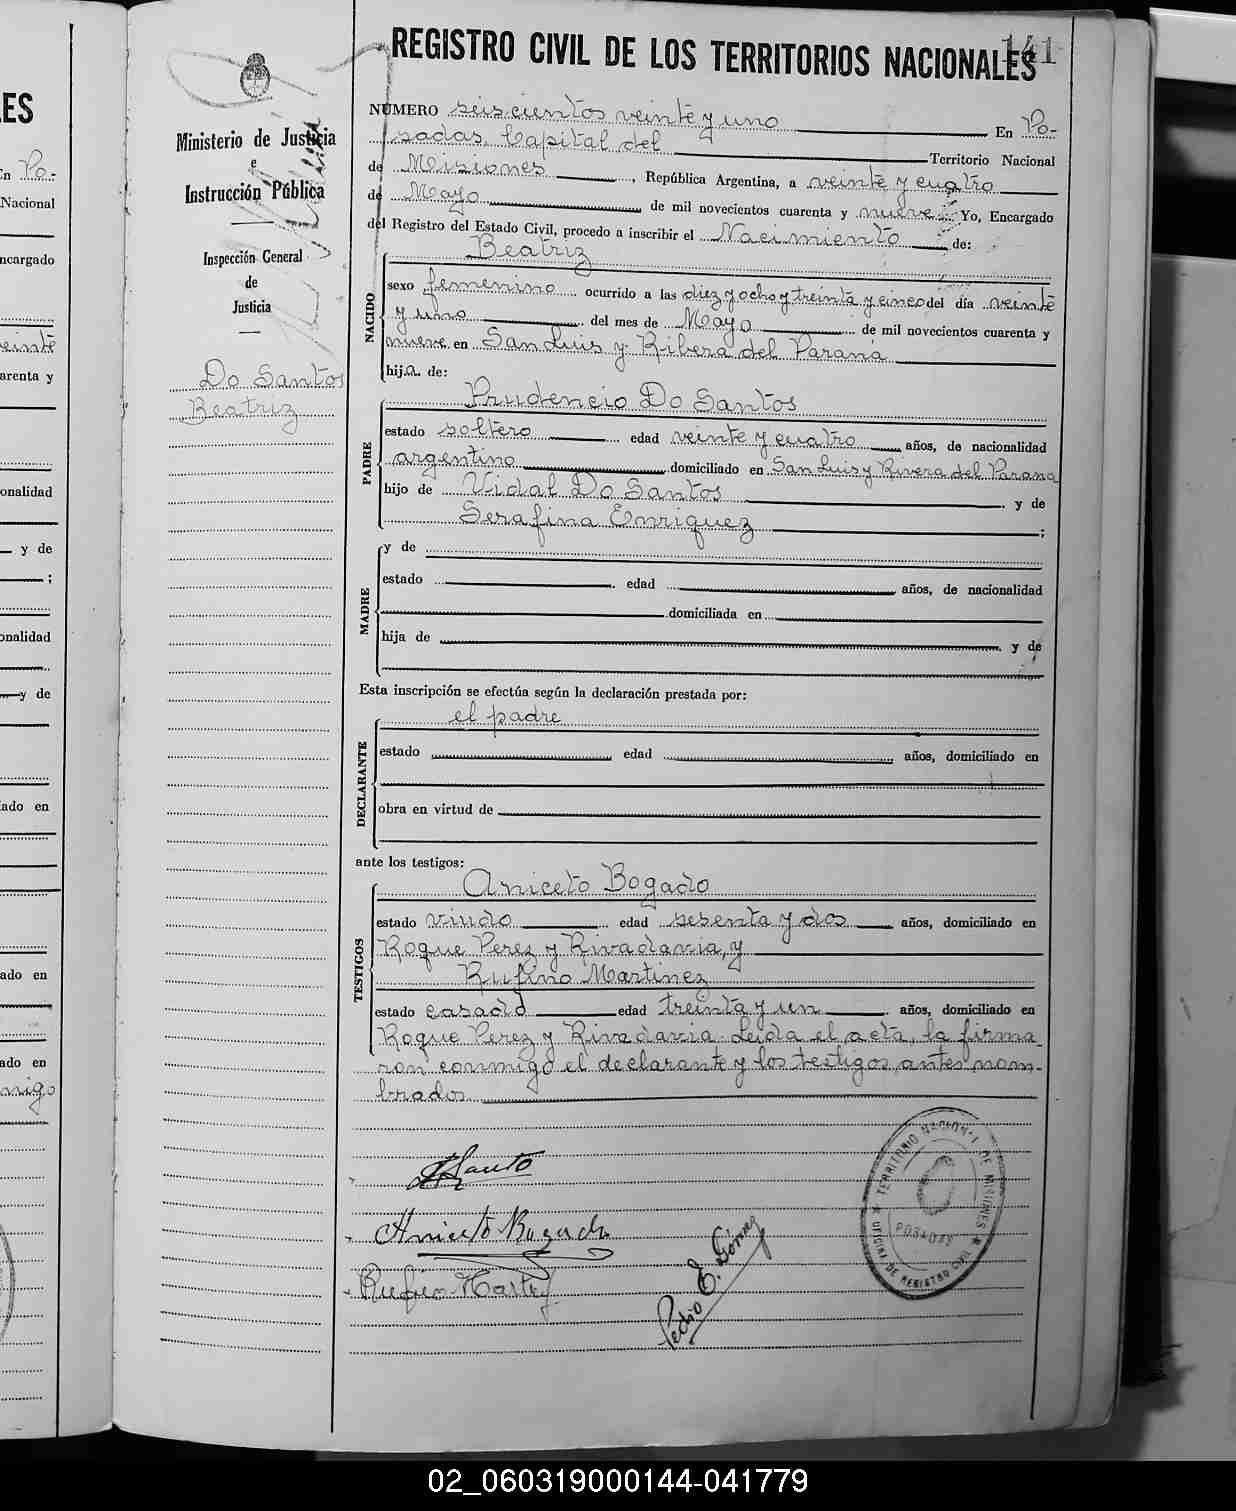 141
REGISTRO CIVIL DE LOS TERRITORIOS NACIONALES
Ministerio de Justicia
e
Instrucción Pública
Inspección General
de
Justicia
Do Santos
Beatriz
NÚMERO seiscientos veinte y uno En Po-
sadas, Capital del Territorio Nacional
de Misiones, República Argentina, a veinte y cuatro
de Mayo de mil novecientos cuarenta y nueve Yo, Encargado
del Registro del Estado Civil, procedo a inscribir el Nacimiento de:
NACIDO
Beatriz
sexo femenino ocurrido a las diez y ocho y treinta y cinco del día veinte
y uno del mes de Mayo de mil novecientos cuarenta y
nueve en San Luis y Ribera del Paraná
hija de:
PADRE
Prudencio Do Santos
estado soltero edad veinte y cuatro años, de nacionalidad
argentino domiciliado en San Luis y Rivera del Parana
hijo de Vidal Do Santos y de
Serafina Enriquez ;
MADRE
y de
estado edad años, de nacionalidad
domiciliada en
hija de y de
Esta inscripción se efectúa según la declaración prestada por:
DECLARANTE
el padre
estado edad años, domiciliado en
obra en virtud de
ante los testigos:
TESTIGOS
Aniceto Bogado
estado viudo edad sesenta y dos años, domiciliado en
Roque Perez y Rivadavia, y
Rufino Martinez
estado casado edad treinta y un años, domiciliado en
Roque Perez y Rivadavia. Leida el acta, la firma
ron conmigo el declarante y los testigos antes nom-
brados
Aniceto Bogado
Pedro E. Gómez
TERRITORIO NACIONAL DE MISIONES
POSADAS
OFICINA DE REGISTRO CIVIL
ES
En Po-
Nacional
ncargado
einte
arenta y
onalidad
y de
;
onalidad
y de
iado en
ado en
ado en
migo
02_060319000144-041779